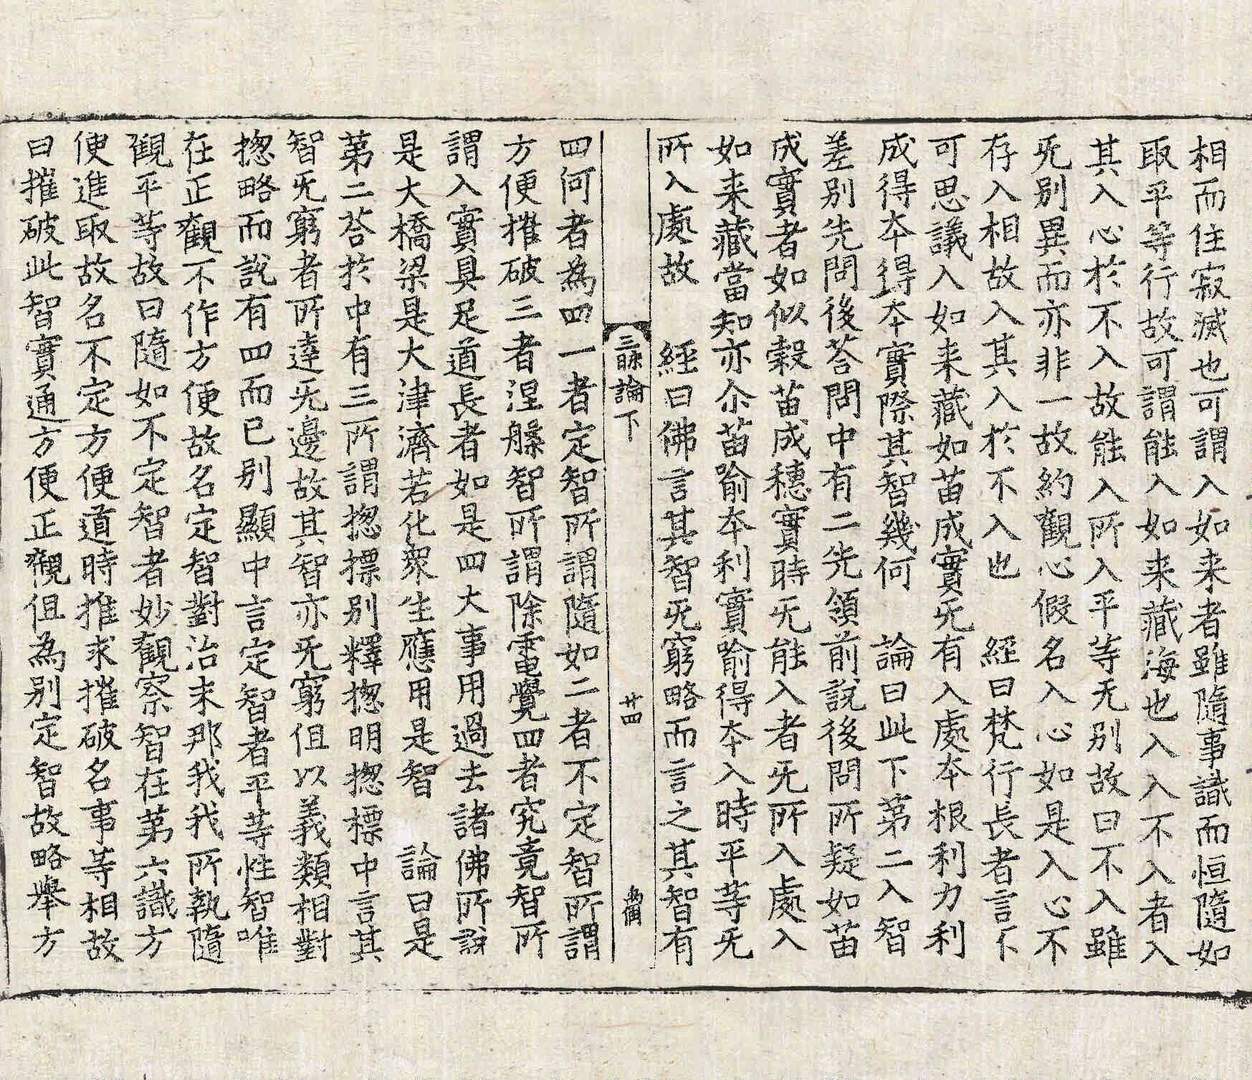 相而住寂滅也可謂入如来者雖隨事識而恒隨如
取平等行故可謂能入如来藏海也入入不入者入
其入心於不入故能入所入平等无别故曰不入雖
旡别異而亦非一故約觀心假名入心如是入心不
存入相故入其入於不入也　經曰梵行長者言不
可思議入如来藏如苗成實旡有入處夲根利力利
成得夲得夲實際其智幾何　論曰此下第二入智
差别先問後荅問中有二先領前說後問所疑如苗
成實者如似穀苗成穗實時旡能入者旡所入處入
如来藏當知亦尒苗喻夲利實喻得夲入時平等旡
所入處故　經曰佛言其智旡窮略而言之其智有
三昧論下　廿四
四何者為四一者定智所謂隨如二者不定智所謂
方便摧破三者涅槃智所謂除電覺四者究竟智所
謂入實具足道長者如是四大事用過去諸佛所說
是大橋梁是大津濟若化衆生應用是智　論曰是
第二荅於中有三所謂揔摽别釋揔明揔摽中言其
智旡窮者所達旡邊故其智亦旡窮但以義類相對
揔略而說有四而已别顯中言定智者平等性智唯
在正觀不作方便故名定智對治末那我我所執隨
觀平等故曰隨如不定智者妙觀察智在第六識方
便進取故名不定方便道時推求摧破名事等相故
曰摧破此智實通方便正觀但為别定智故略舉方